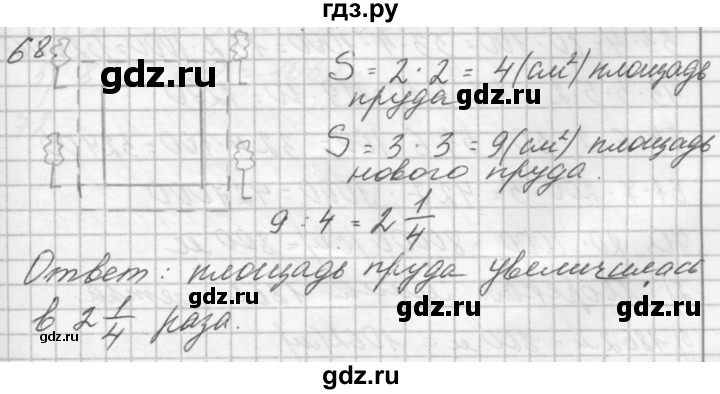 гдз.ру
68
gdz.ru
S = 2 · 2 = 4 (см²) площадь
пруда
gdz.ru
S = 3 · 3 = 9 (см²) площадь
нового пруда.
9 : 4 = 2 1/4
Ответ: площадь пруда увеличилась
gdz.ru gdz.ru
в 2 1/4 раза.
gdz.ru gdz.ru
gdz.ru